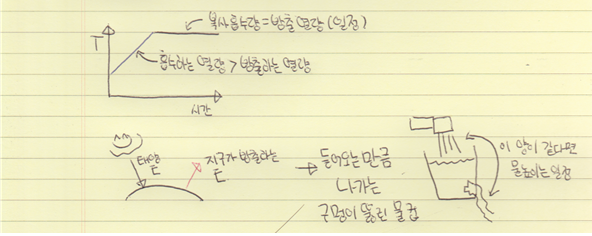 T
복사흡수량 = 방출 열량 (일정)
흡수하는 열량 > 방출하는 열량
시간
태양
E
지구가 방출하는
E
→ 들어오는 만큼
나가는
구멍이 뚫린 물컵
이 양이 같다면
물높이는 일정